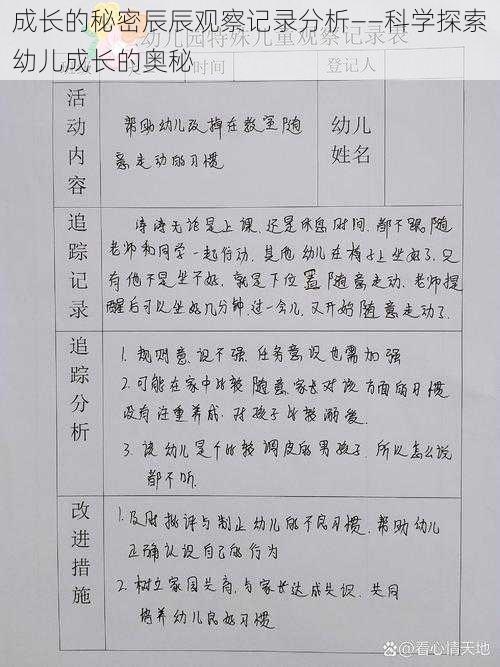 成长的秘密辰辰观察记录分析——科学探索
幼儿成长的奥秘
幼儿园特殊儿童观察记录表
时间
登记人
活动内容
帮助幼儿改掉在教室随
意走动的习惯
幼儿
姓名
追踪记录
涛涛无论是上课,还是休息时间,都不跟随
老师和同学一起行动,其他幼儿在椅子上坐好了,只
有他不是坐不好,就是下位置随意走动,老师提
醒后可以坐好几分钟,过一会儿,又开始随意走动了.
追踪分析
1. 规则意识不强,任务意识也需加强
2. 可能在家中比较随意,家长对该方面的习惯
没有注重养成,对孩子比较溺爱.
3. 该幼儿是个比较调皮的男孩子,所以怎么说
都不听.
改进措施
1. 及时批评与制止幼儿的不良习惯,帮助幼儿
正确认识自己的行为
2. 树立家园共商,与家长达成共识,共同
培养幼儿良好习惯
@看心情天地